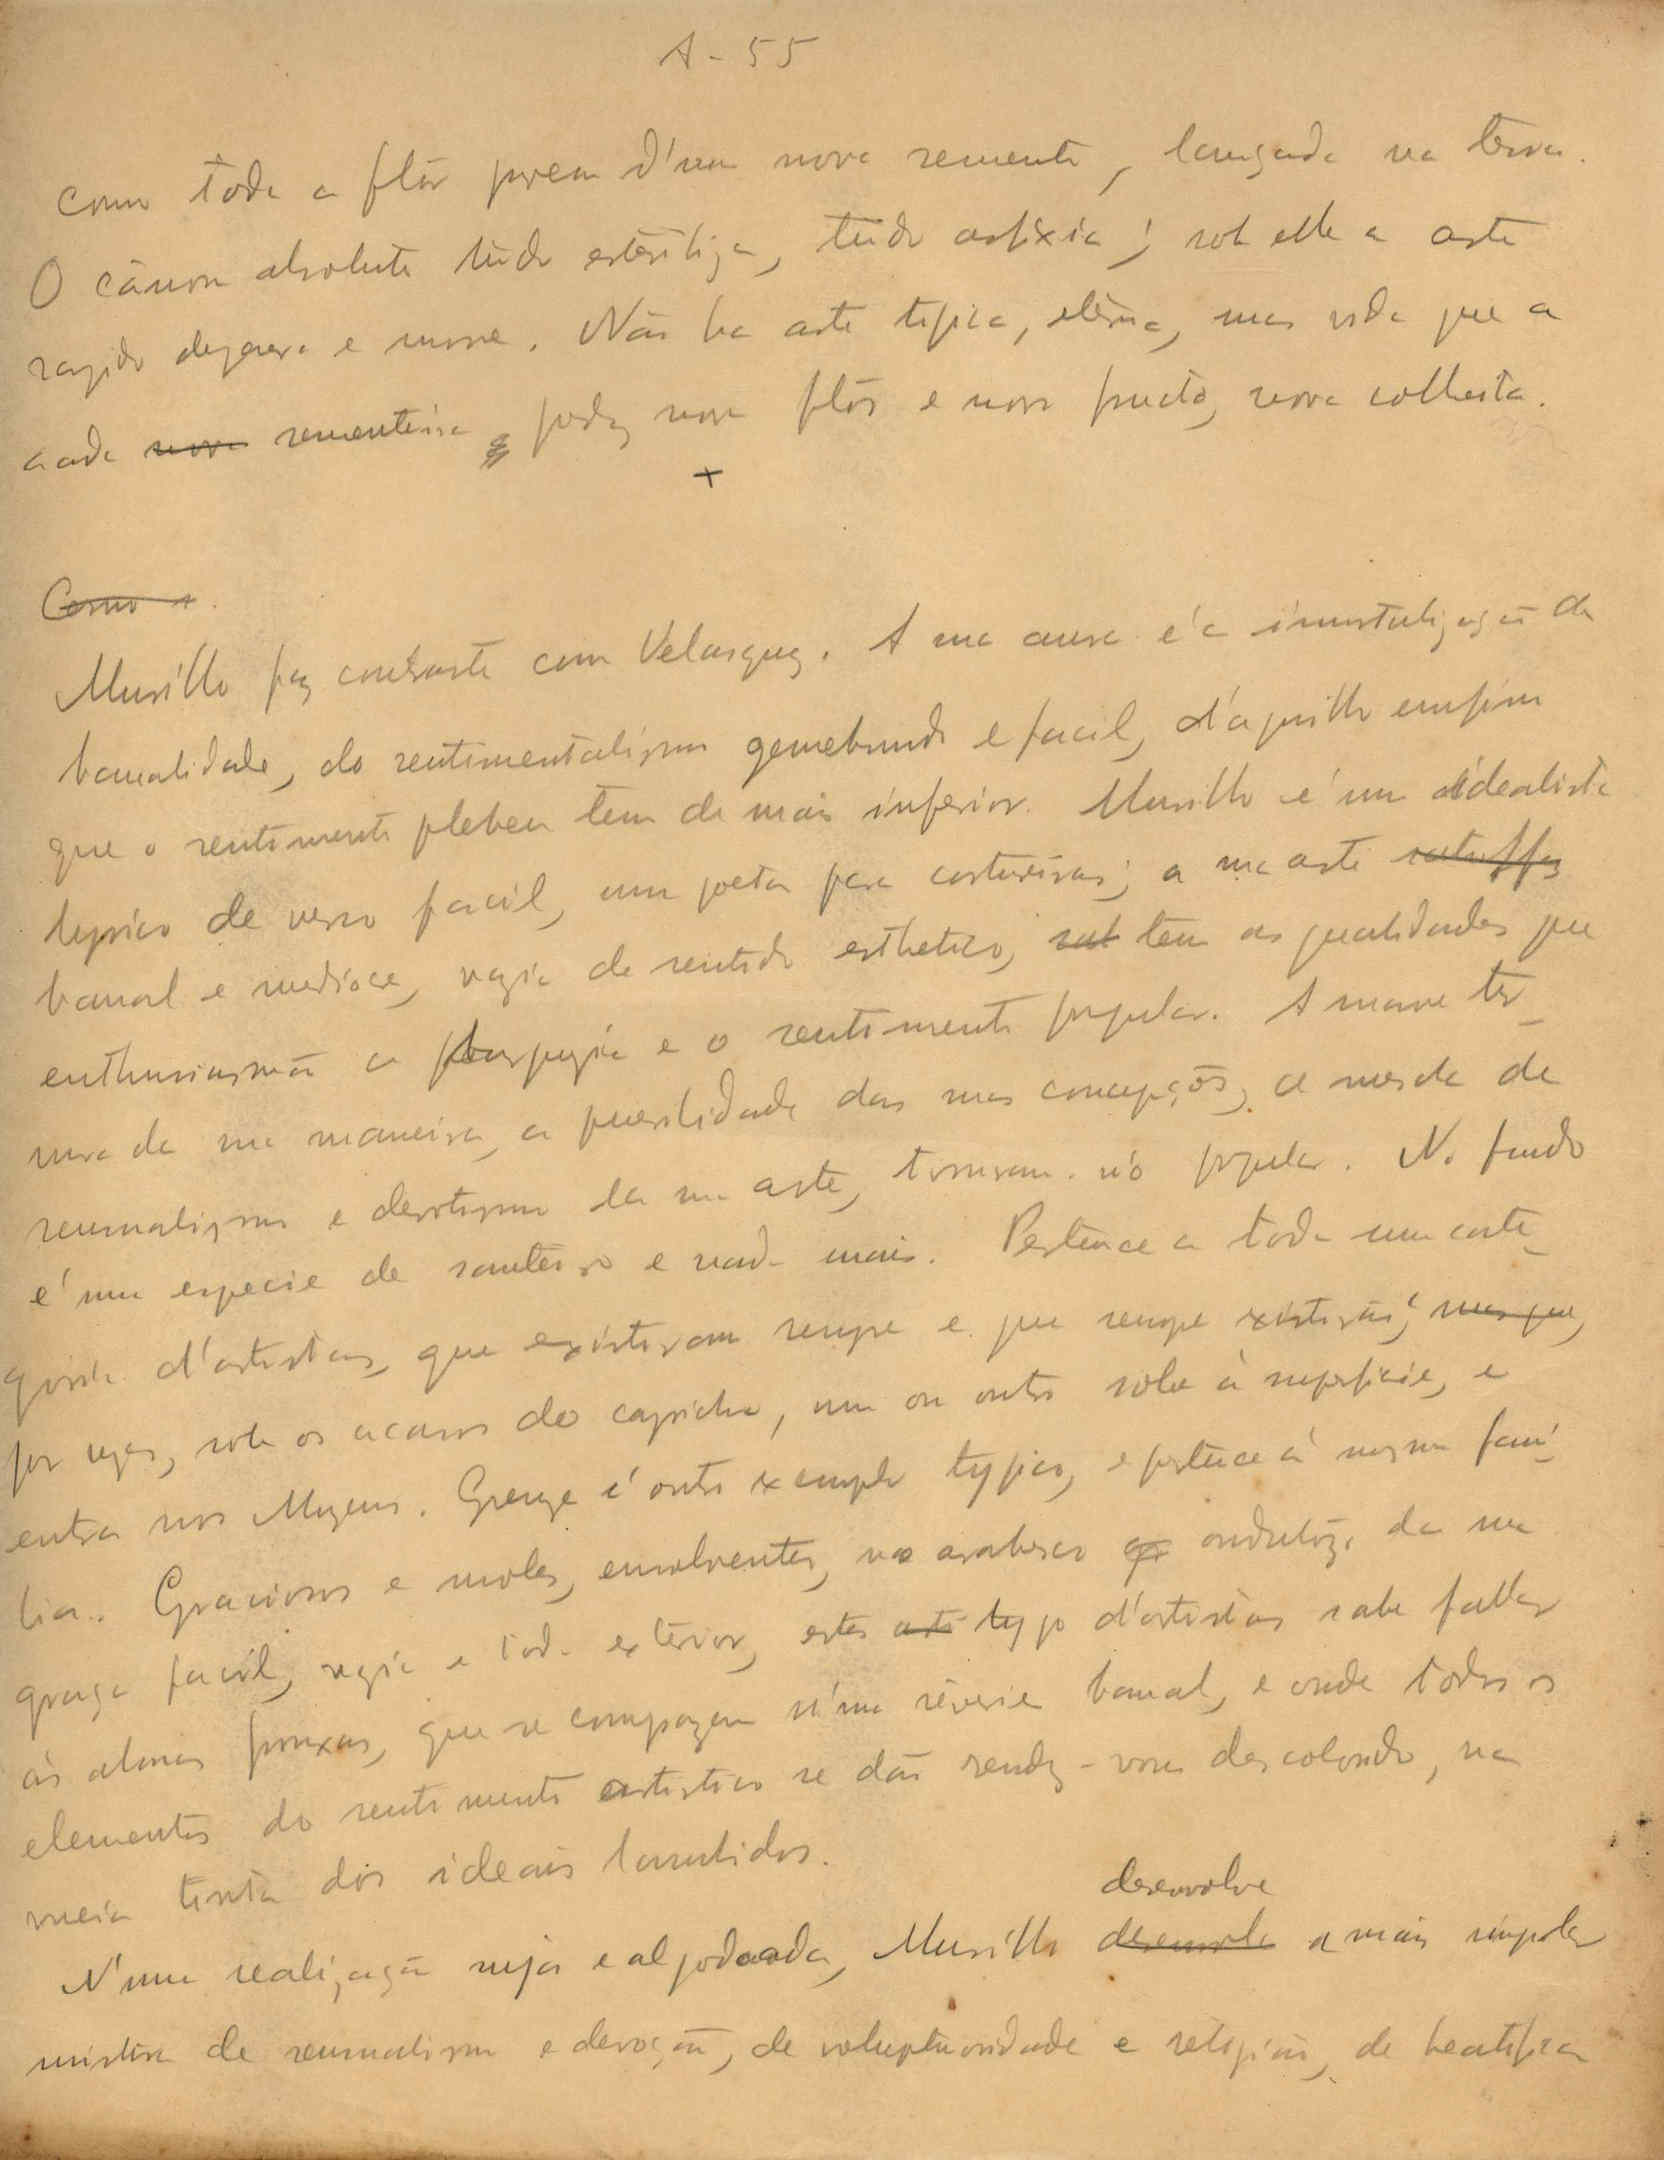 A - 55
como toda a flôr provem d'uma nova semente, lançada na terra.
O cânon absoluto tudo esterêliza, tudo asfixia; sob elle a arte
rapido degenera e morre. Não ha arte tipica, etèrna, mas vida que a
cada nova sementeira, produz nova flôr e novo fructo, nova colheita.
+
Como a.
Murillo faz contraste com Velasquez. A sua aura é a imortalização da
banalidade, do sentimentalismo gemebundo e facil, d'aquillo emfim
que o sentimento plebeu tem de mais inferior. Murillo é um idealista
lyrico de verso facil, um poeta para costureiras; a sua arte satisffaz
banal e mediocre, vazia de sentido esthetico, sat tem as qualidades que
enthusiasmão a burguezia e o sentimento popular. A suave ter-
nura da sua maneira, a puerilidade das suas concepções, a mescla de
sensualismo e devotismo da sua arte, tornaram-n'o popular. No fundo
é uma especie de santeiro e nada mais. Pertence a toda uma cate-
goria d'artistas, que existiram sempre e que sempre existirão; mas que,
por vezes, sob os acasos do capricho, um ou outro sobe à superficie, e
entra nos Mezeus. Greuze é outro exemplo typico, e pertence à mesma fami-
lia. Graciosos e moles, envolventes, no arabesco ondulóz, da sua
graça facil, vazia e toda exterior, estes arti typo d'artistas sabe fallar
às almas frouxas, que se comprazem n'uma rêverie banal, e onde todos os
elementos do sentimento artistico se dão rendez-vous descolorido, na
meia tinta dos ideais transidos.
desenvolve
N'uma realização suja e algodoada, Murillo desenvole a mais singular
mistura de sensualismo e devoção, de voluptuosidade e religião, de beatifica